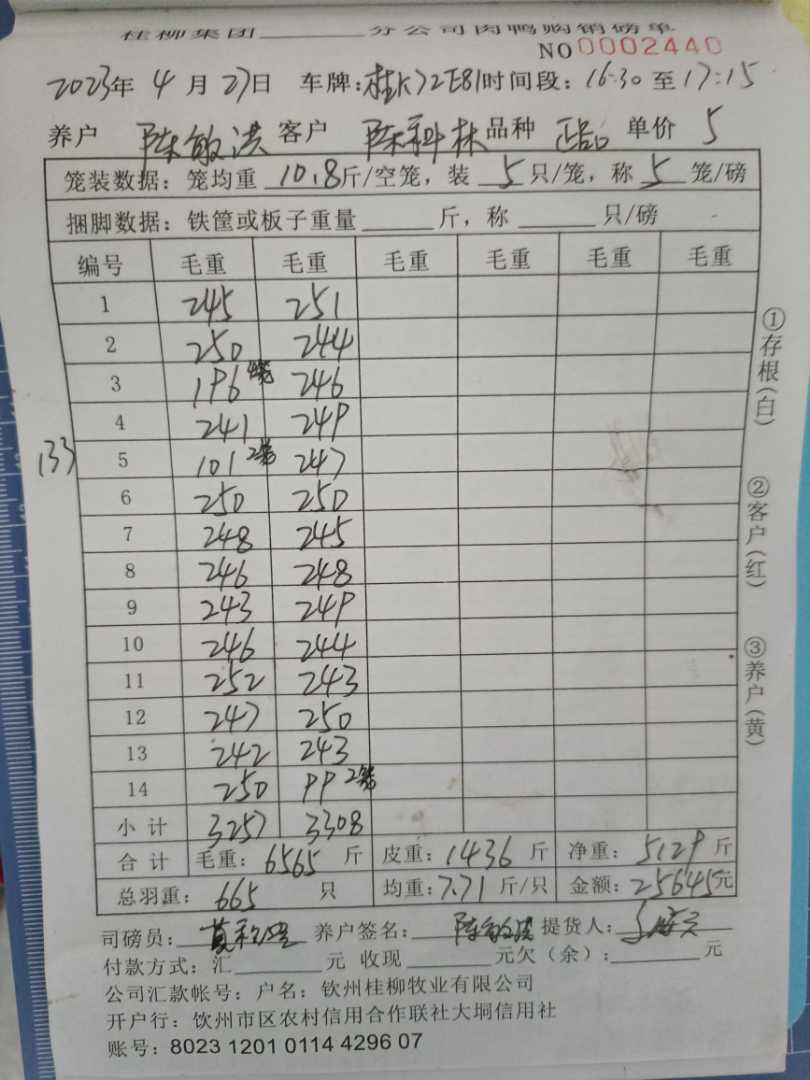 桂柳集团______分公司肉鸭购销磅单
NO 0002440
2023年 4 月 27日 车牌:桂K72E81时间段: 16:30 至 17:15
养户 陈敏洪 客户 陈科林 品种 正品 单价 5
笼装数据: 笼均重 10.8斤/空笼, 装 5 只/笼, 称 5 笼/磅
捆脚数据: 铁筐或板子重量______斤, 称______只/磅
编号 毛重 毛重 毛重 毛重 毛重 毛重
1 245 251
2 250 244
3 196 4笼 246
4 241 249
133
5 101 2笼 247
6 250 250
7 248 245
8 246 248
9 243 249
10 246 244
11 252 243
12 247 250
13 242 243
14 250 99 2笼
小计 3257 3308
合计 毛重: 6565 斤 皮重: 1436 斤 净重: 5129 斤
总羽重: 665 只 均重: 7.71 斤/只 金额: 25645元
司磅员: 养户签名: 陈敏洪 提货人:
付款方式: 汇______元 收现______元欠(余):______元
公司汇款帐号: 户名: 钦州桂柳牧业有限公司
开户行: 钦州市区农村信用合作联社大垌信用社
账号: 8023 1201 0114 4296 07
①存根(白)
②客户(红)
③养户(黄)